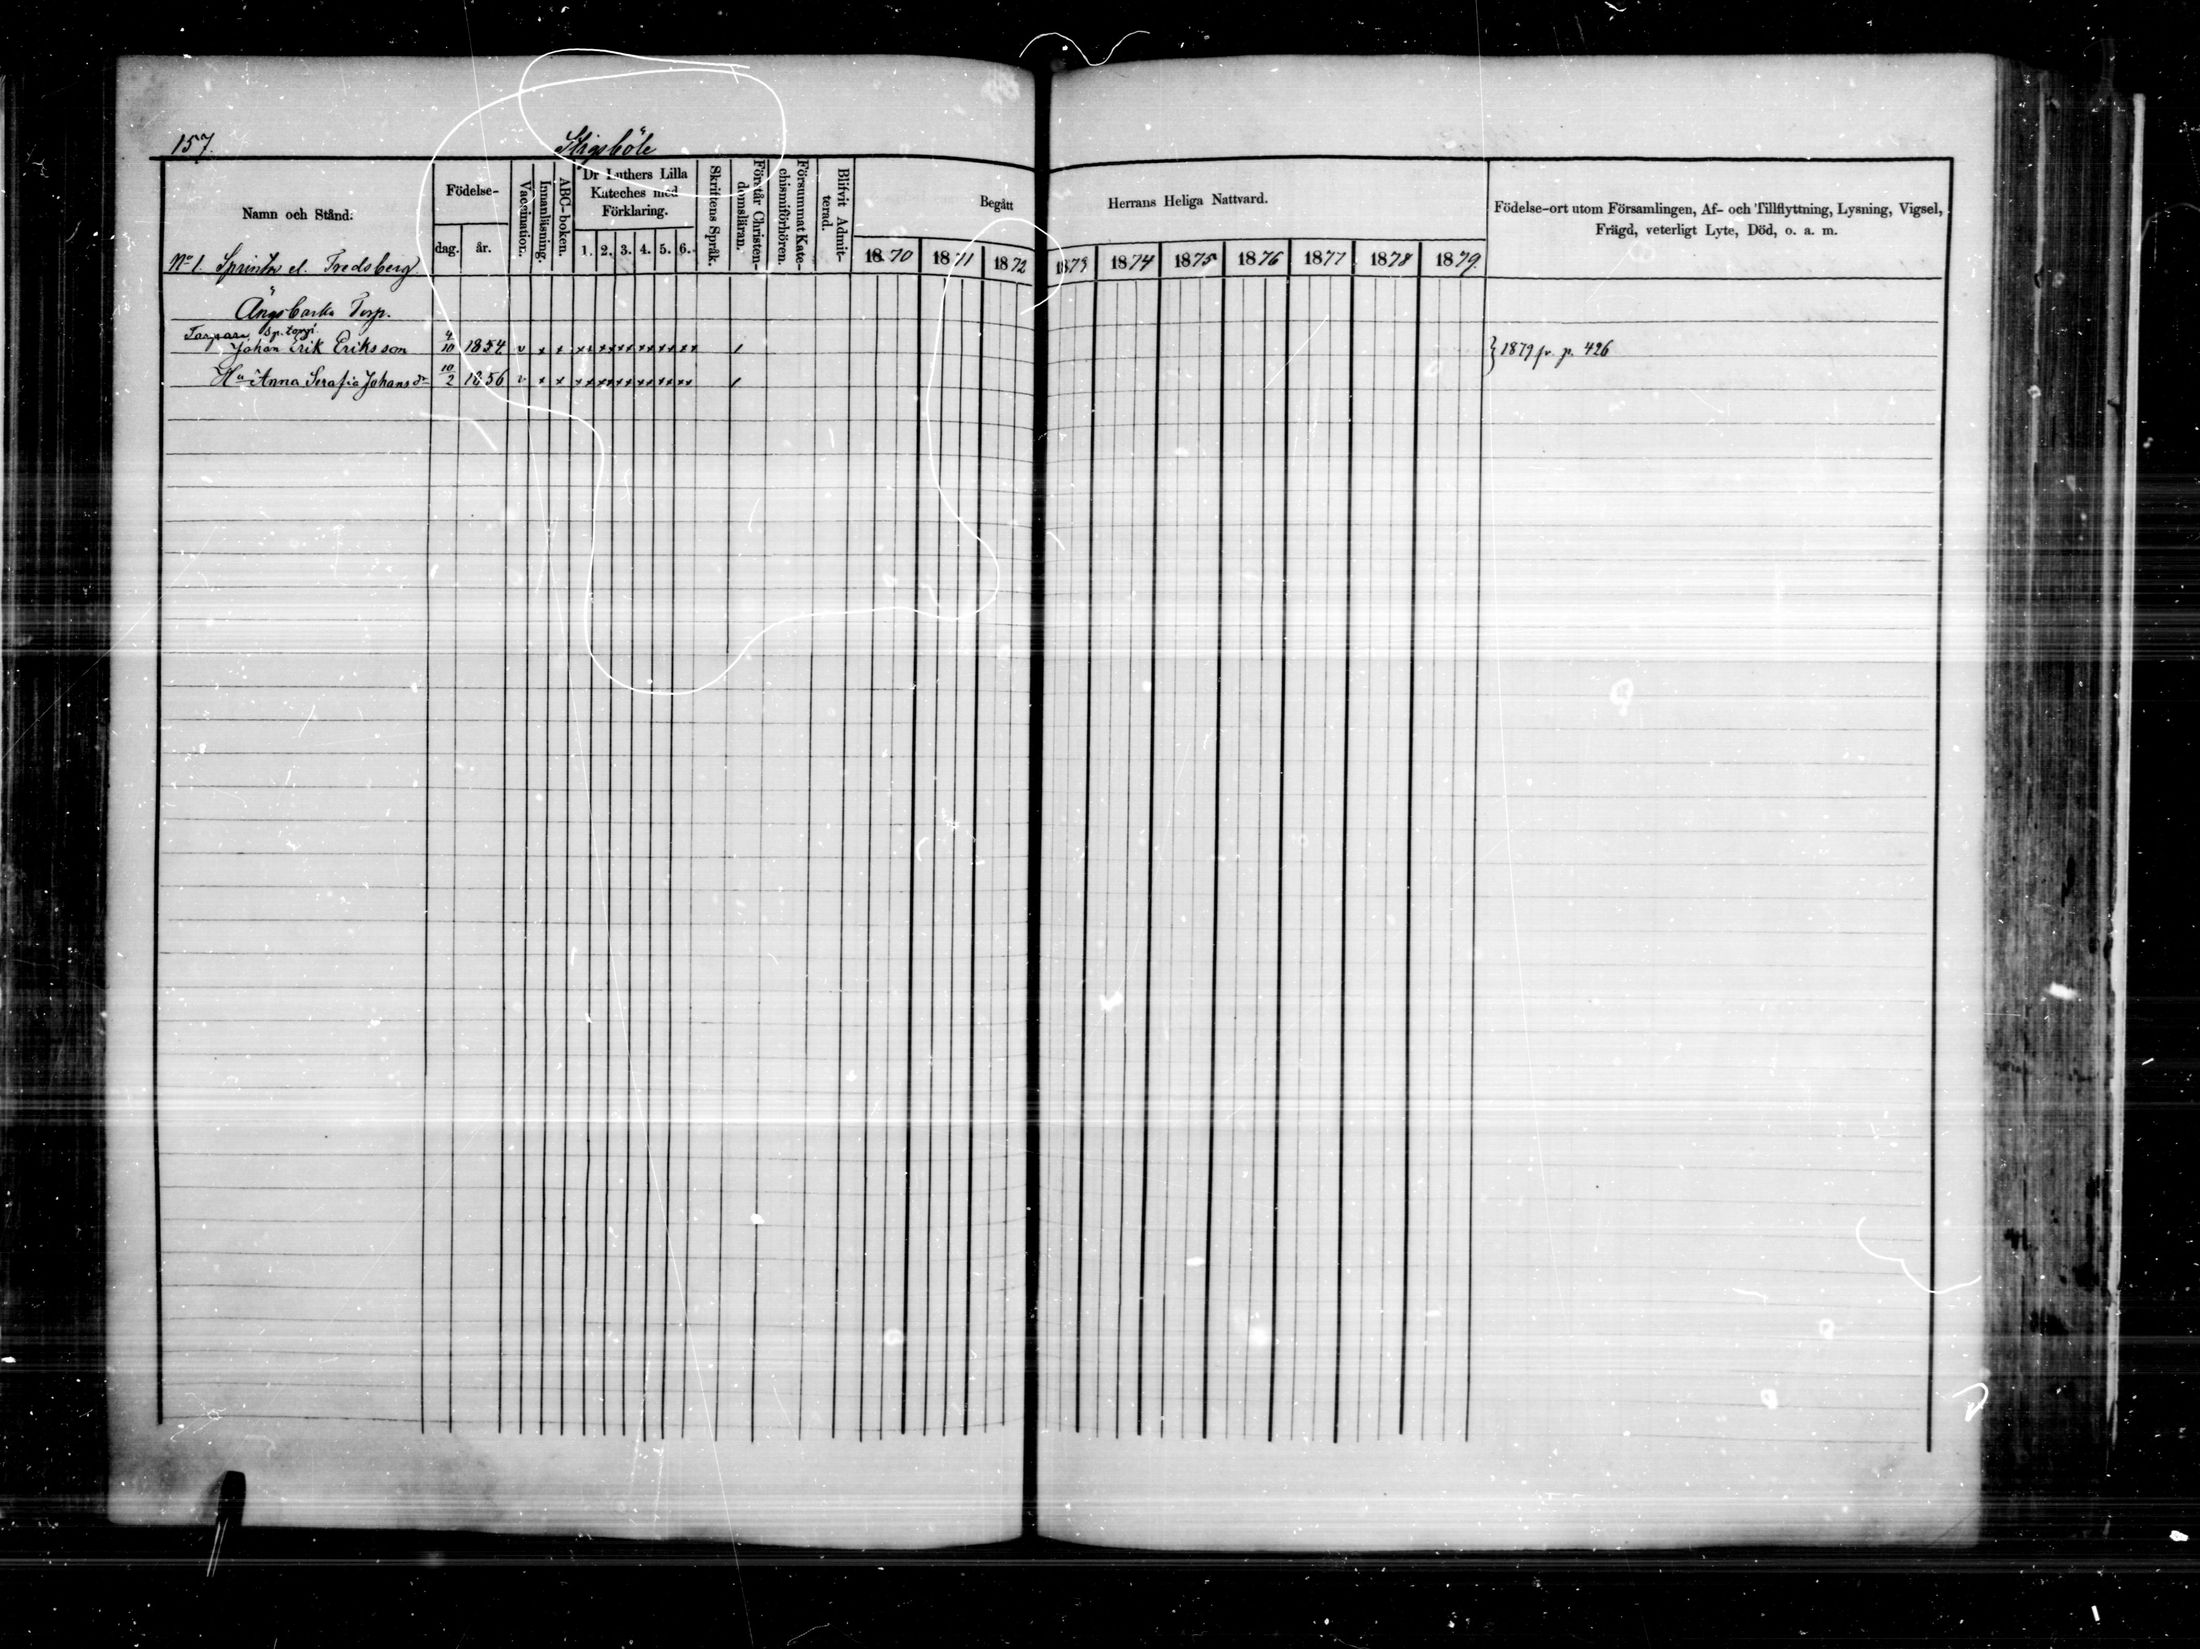 157.
Stigsböle
Namn och Stånd.
Födelse-
dag. år.
Vaccination.
Innanläsning.
ABC-boken.
Dr Luthers Lilla
Kateches med
Förklaring.
1. 2. 3. 4. 5. 6.
Skriftens Språk.
Förstår Christen-
domsläran.
Försummat Kate-
chismiförhören.
Blifvit Admit-
terad.
Begått
Herrans Heliga Nattvard.
1870 1871 1872 1873 1874 1875 1876 1877 1878 1879.
Födelse-ort utom Församlingen, Af- och Tillflyttning, Lysning, Vigsel,
Frägd, veterligt Lyte, Död, o. a. m.
No 1. el. Fredsberg
Ängsbacka Torp.
Johan Erik Eriksson 4/10 1854 v x x xx xx xx xx xx xx / } 1879 fr. p. 426
Hu Anna Serafia Johansdr 10/2 1856 v x x xx xx xx xx xx xx /